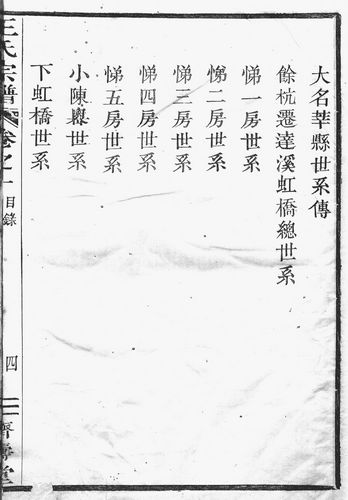 大名莘縣世系傳
餘杭遷達溪虹橋總世系
悌一房世系
悌二房世系
悌三房世系
悌四房世系
悌五房世系
小陳嶴世系
下虹橋世系
王氏宗譜
卷之一
目錄
四
三
堂